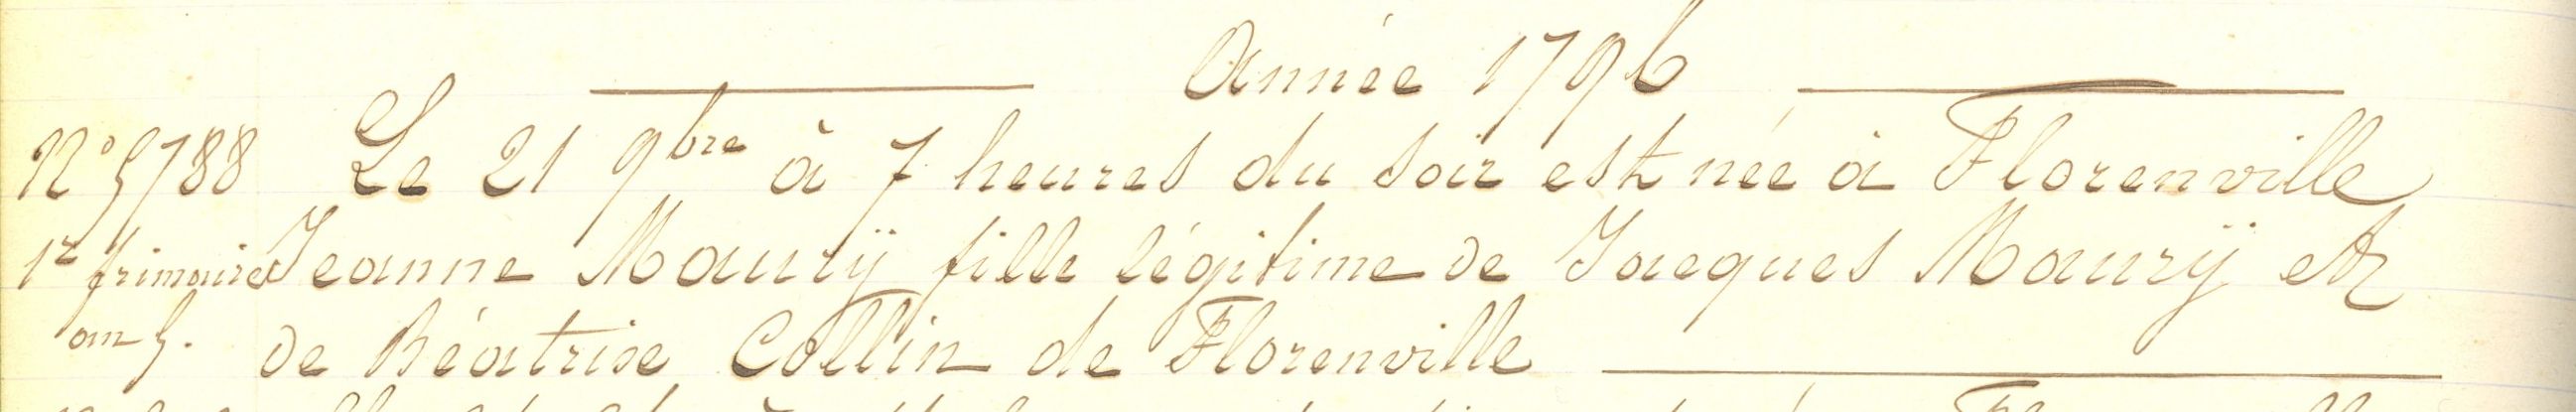 Année 1796
N° 5788 Le 21 9bre à 7 heures du soir est née à Florenville
1r frimaire Jeanne Maurÿ fille légitime de Jacques Maurÿ et
an 5. de Béatrise Collin de Florenville